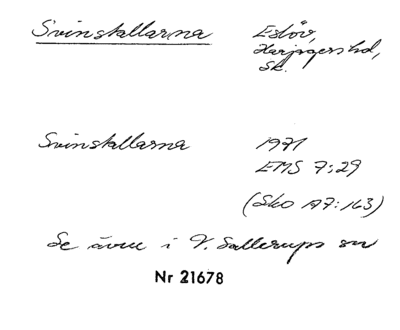 Svinstallarna Eslöv,
Harjagers hd,
Sk.
Svinstallarna 1971
EMS 7:29
(Sko A7:163)
Se även i V. Sallerups sn
Nr 21678